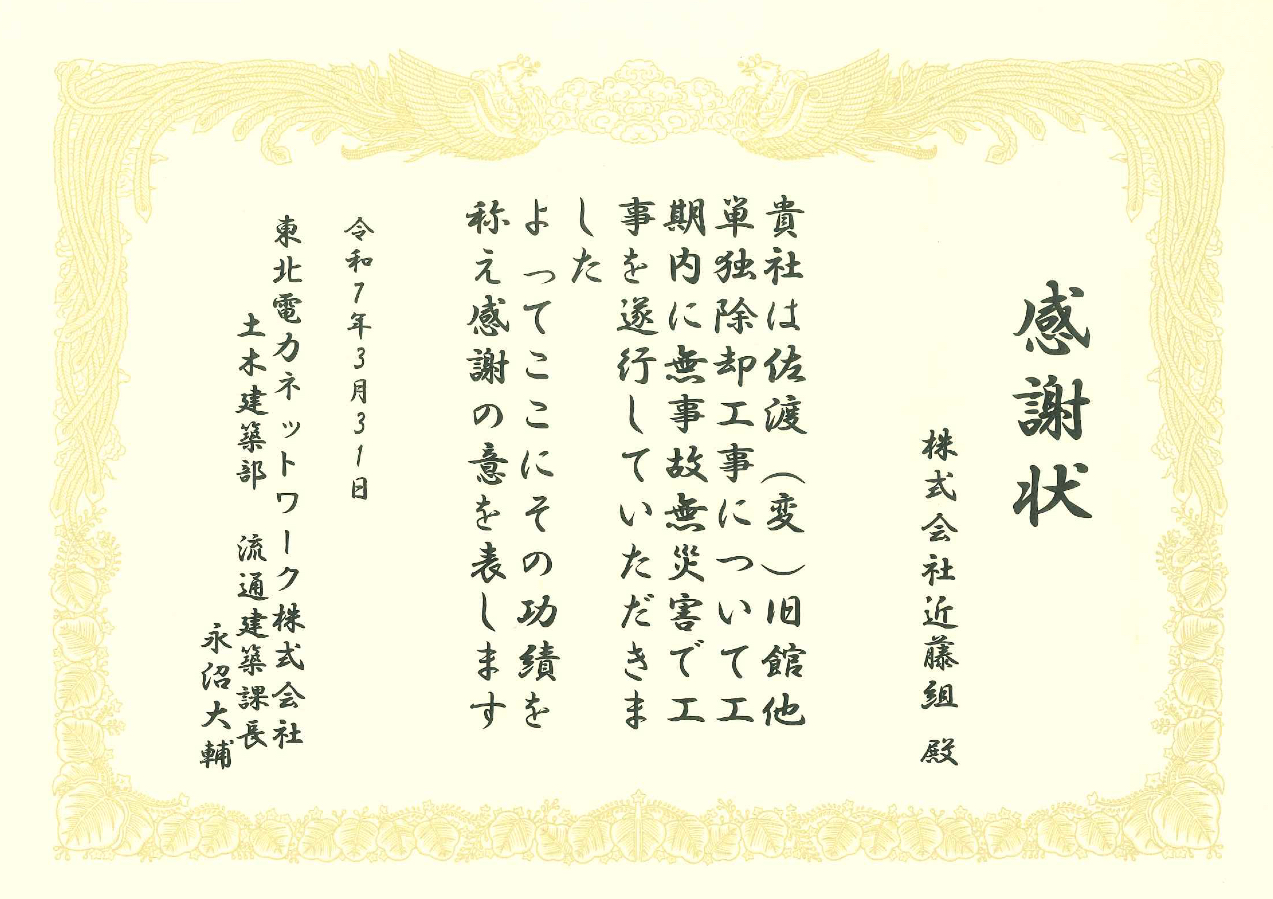 感謝状
株式会社近藤組 殿
貴社は佐渡(変)旧館他
単独除却工事について工
期内に無事故無災害で工
事を遂行していただきま
した
よってここにその功績を
称え感謝の意を表します
令和7年3月31日
東北電力ネットワーク株式会社
土木建築部 流通建築課長
永沼大輔